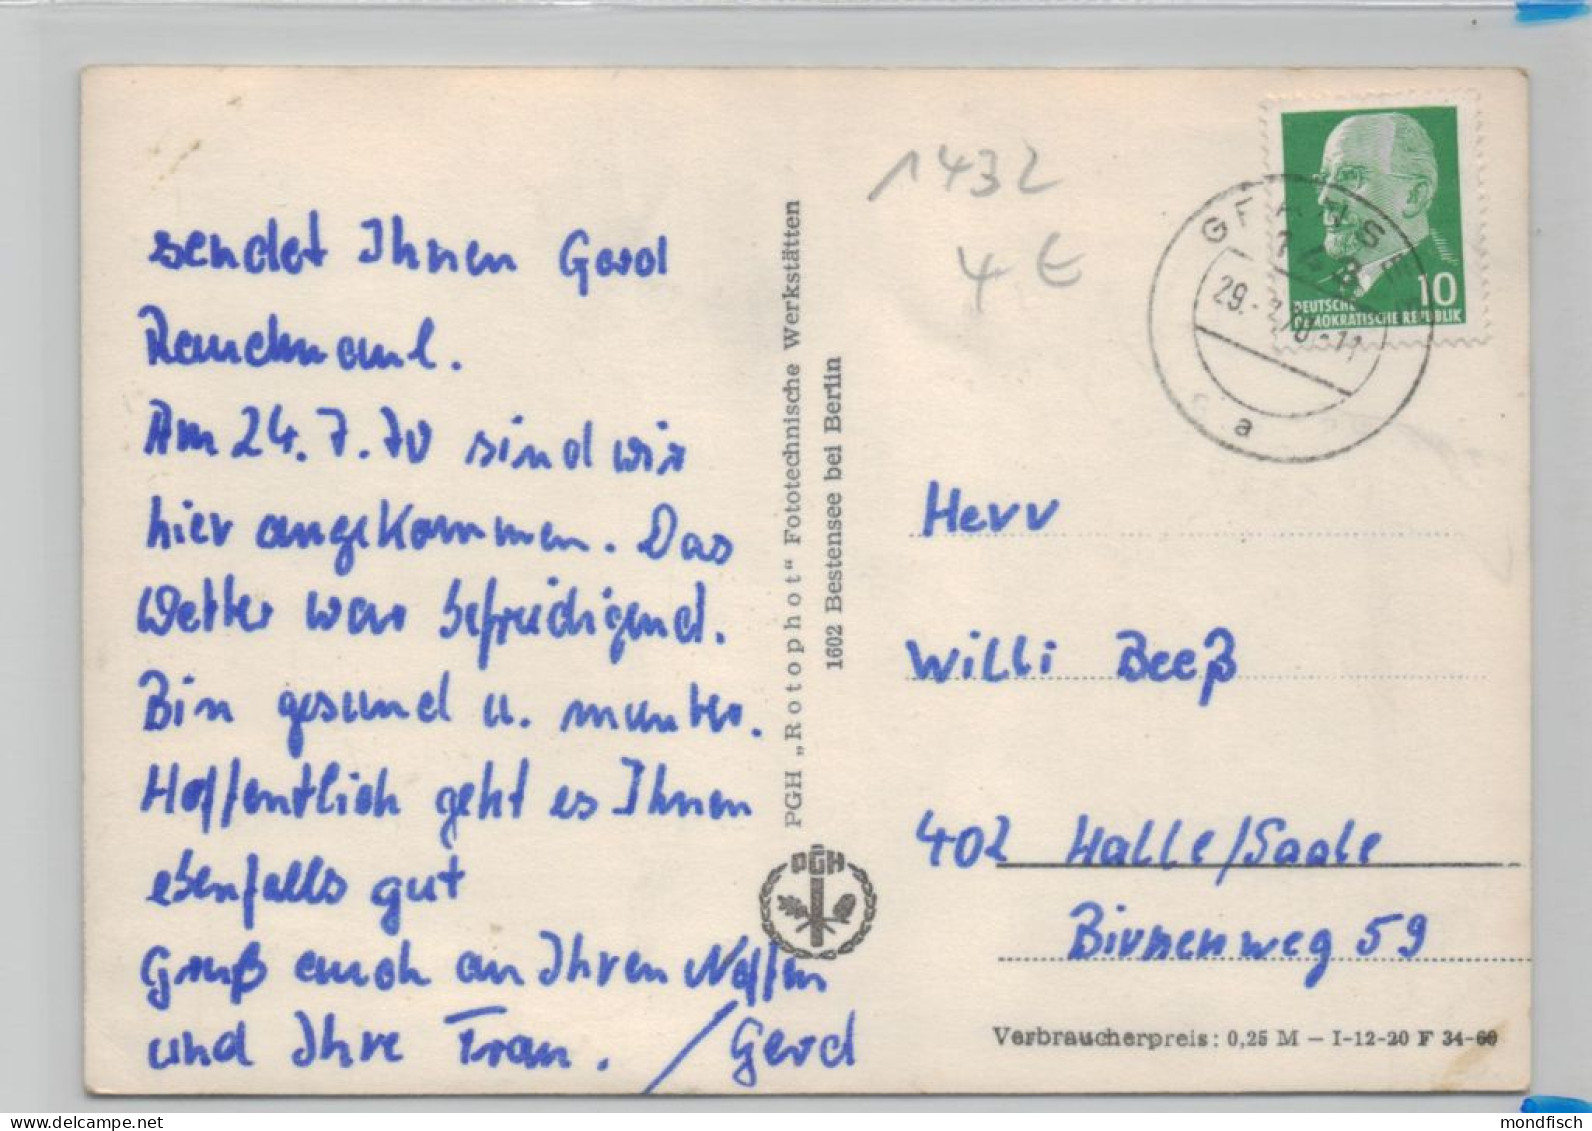 sendet Ihnen Gerd
Rauchmaul.
Am 24.7.70 sind wir
hier angekommen. Das
Wetter war befreidigend.
Bin gesund u. munter.
Hoffentlich geht es Ihnen
ebenfalls gut
Gruß auch an Ihren Neffen
und Ihre Frau. / Gerd
PGH „Rotophot“ Fototechnische Werkstätten
1602 Bestensee bei Berlin
PGH
1432
4 €
10
DEUTSCHE
DEMOKRATISCHE REPUBLIK
29.-7.70-11
a
Herr
Willi Beeß
402 Halle/Saale
Birnenweg 59
Verbraucherpreis: 0,25 M – I-12-20 F 34-60
mondfisch